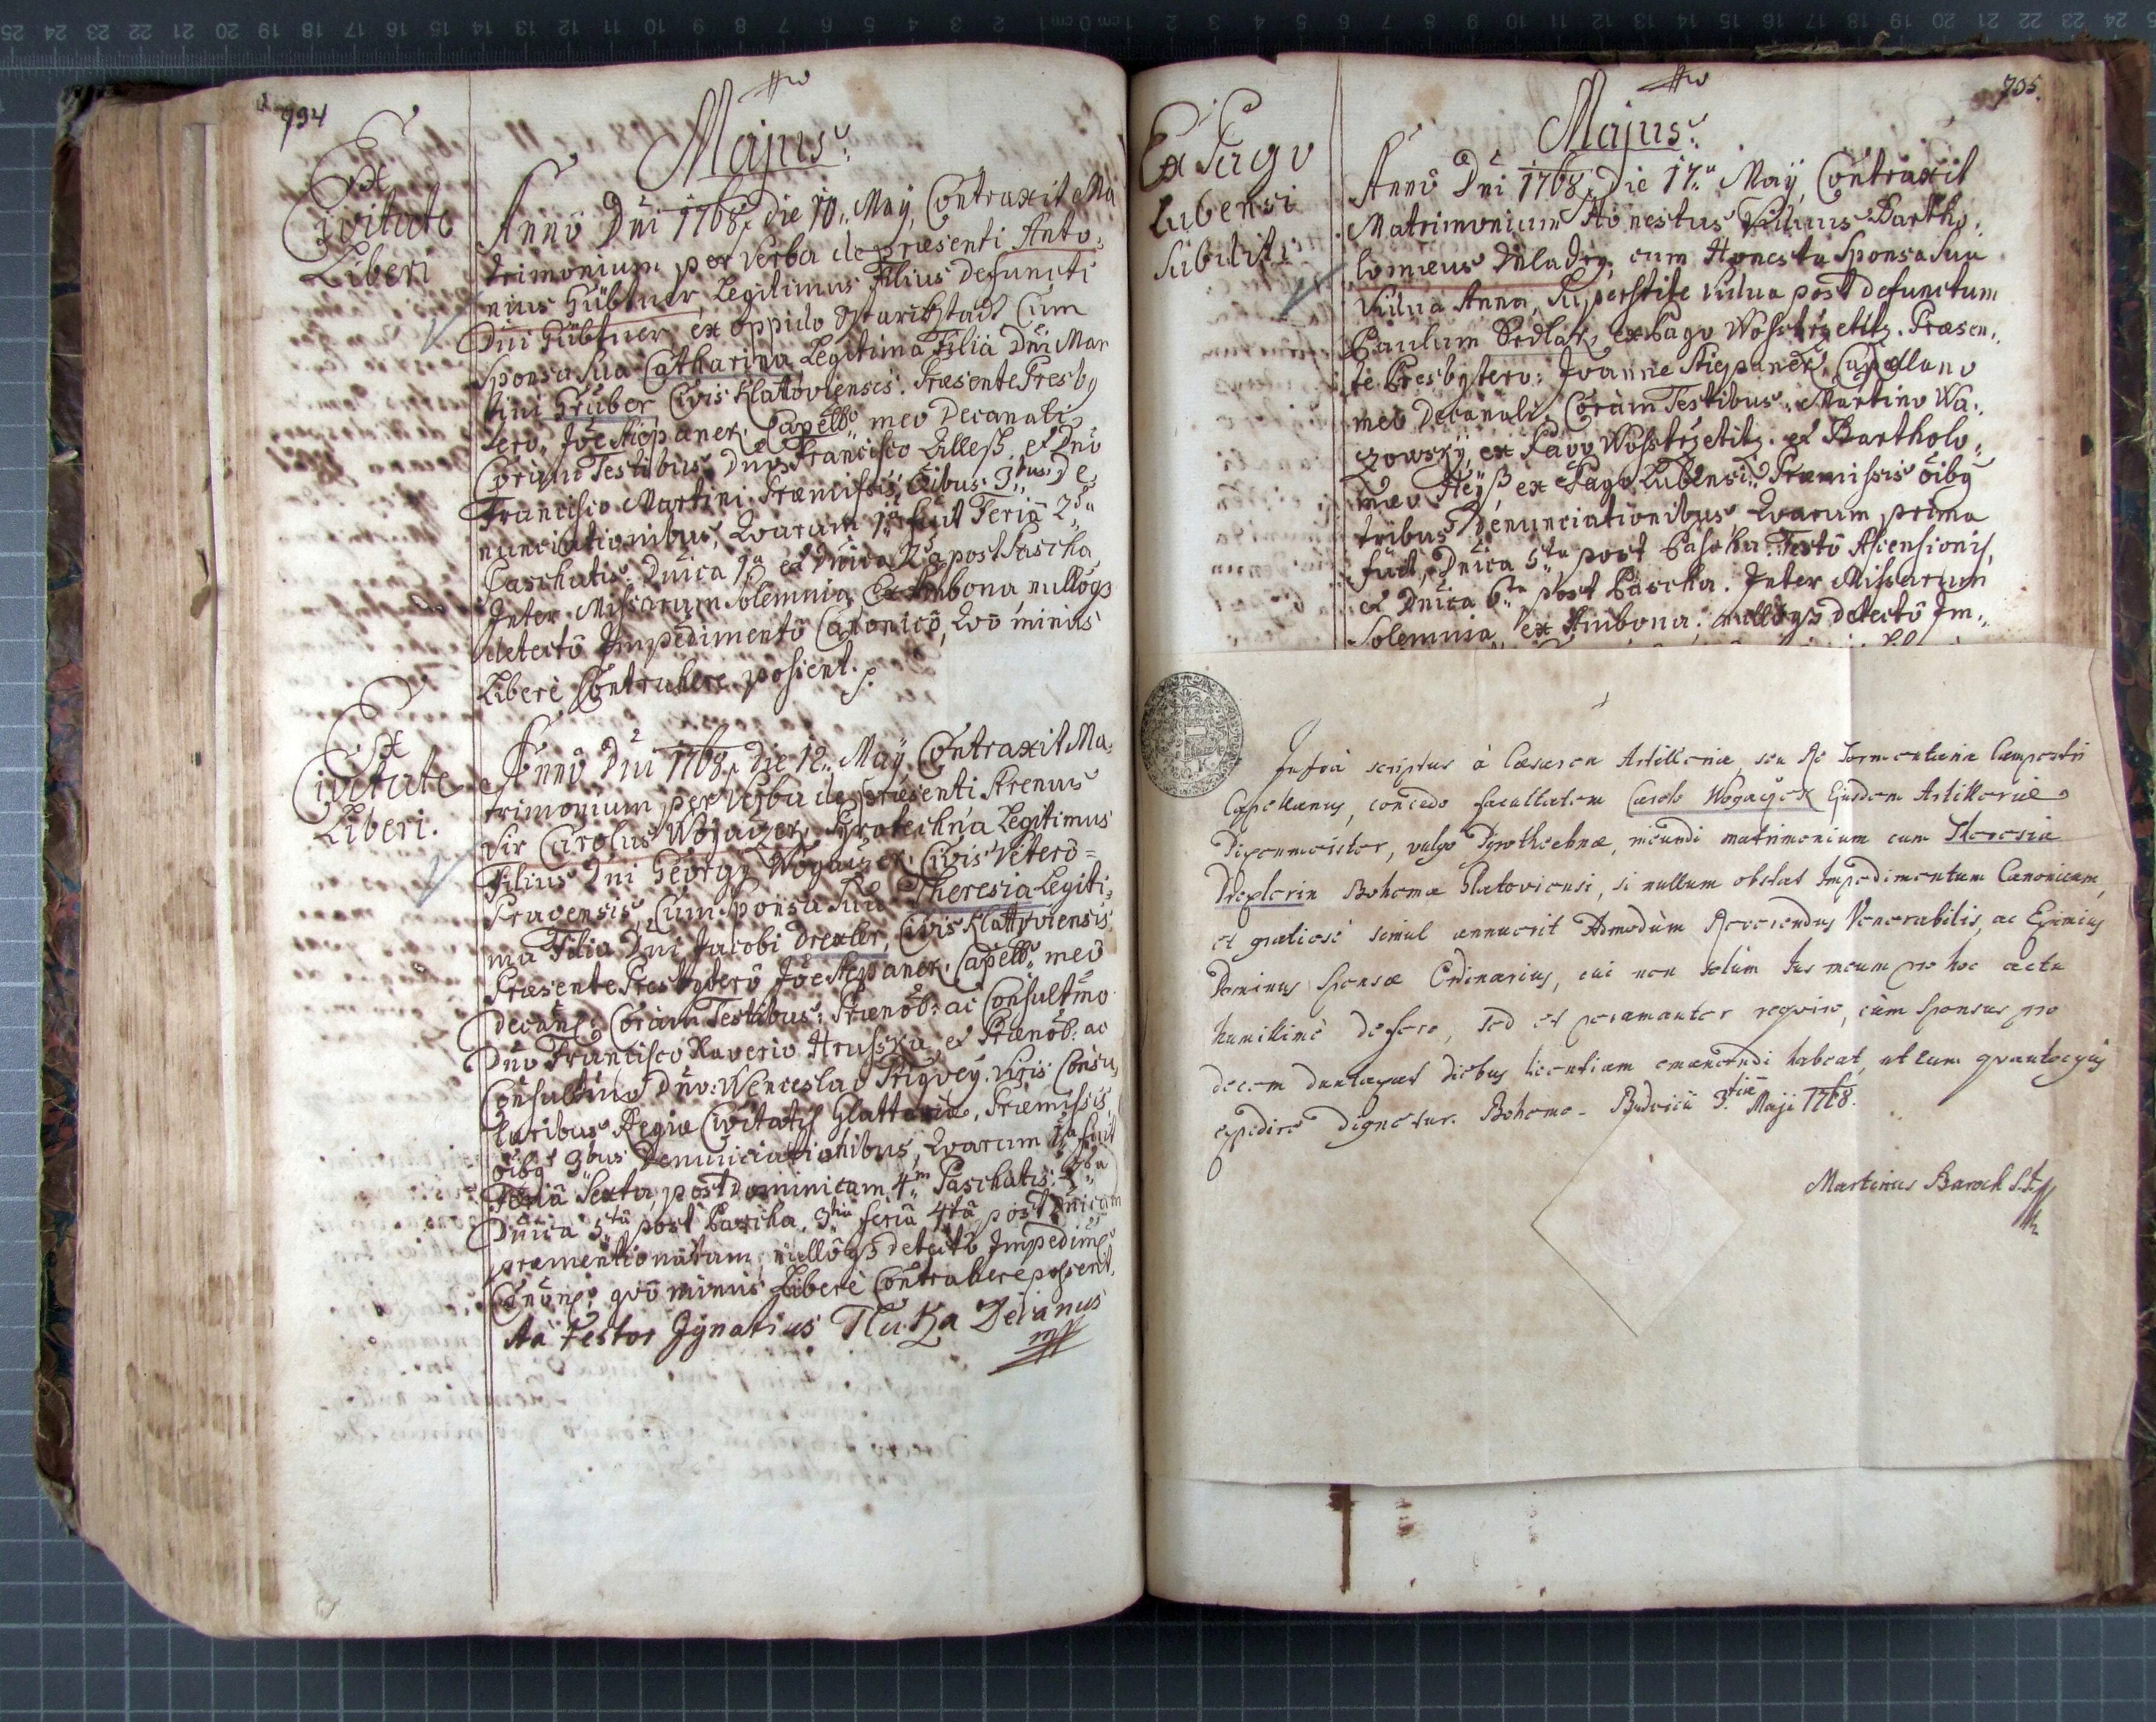 794
Majus
Ex
Civitate
Liberi
Anno Dni 1768, die 10.. Maÿ, Contraxit Ma
trimonium per Verba de præsenti Anto:
nius Hübtner, Legitimus Filius defuncti
Dni Hübtner ex oppido Cum
Sponsa Sua Catharina Legitima Filia Dni Mar
tini Gruber Civis Klattoviensis. Præsente Presby
tero Joe Stiepanek, Capello meo Decanali
Coram Testibus Dno Francisco et Dno
Francisco Martini. Præmissis oibus 3bus De
nunciationibus, Qvarum 1a fuit Feria 2da
Paschatis. Dnica 1a et Dnica 2da post Pascha
Inter Missarum Solemnia Ex Ambona nullôqz
detectô Impedimentô Canonicô, Qvô minus
Liberè Contrahere possent.
Ex
Civitate
Liberi.
Annô Dni 1768, Die 12.. Maÿ Contraxit Ma:
trimonium per Verba de præsenti Strenuus
Vir Carolus Woÿaczek, Pyrotechna Legitimus
Filius Dni Georgÿ Woÿaczek, Civis Vetero=
Pragensis, Cum Sponsa Sua Theresia Legiti:
ma Filia Dni Jacobi Drexler, Civis Klattoviensis
Præsente Presbyterô Joe Stiepanek, Capello meo
Decanli. Coram Testibus: Prænob: ac Consultmo
Dno Francisco Xaverio Hrusska, et Prænob: ac
Consultmo Dno: Wenceslao Viris Consu,
laribus Regiæ Civitatis Glattoviæ, Præmissis
oibqs 3bus Denunciationibus, Qvarum 1a fuit
Feriâ Sexta, post Dominicam 4m Paschatis: 2da
Dnica 5ta post Pascha, 3tia feriâ 4tâ post Dnicam
præmentionatam, nullôqz detectô Impedimo
Canonco, qvô minus Liberè Contrahere possent.
Ita testor Ignatius Tluka Decanus
mp
705.
Majus
Ex Pago
Lubensi
Subditi
Annô Dni 1768, Die 17.a Maÿ, Contraxit
Matrimonium Honestus Viduus Bartho:
lomæus Mladÿ, cum Honesta Sponsa Sua
Vidua Anna, Superstite Vidua post defunctum
Paulum Sedlak, ex Pago Wosstrzetitz. Præsen:
te Presbytero: Joanne Stiepanek, Capellano
meo Decanali, Coram Testibus: Martino Wa:
czowskÿ, ex Pago Wosstrzetitz. et Bartholo:
mæo Reÿß, ex Pago Lubensi. Præmissis oibq
tribus Denunciationibus, Qvarum prima
fuit, Dnica 5ta post Pascha: Festô Ascensionis,
et Dnica 6ta post Pascha. Inter Missarum
Solemnia, ex Ambona: nullôqz detectô Im:
Infra scriptus à Cæsarea Artilleria, seu Re Tormentaria Campestri
Capellanus, concedo facultatem Carolo Wogaczek Ejusdem Artilleriæ
Pixenmeister, vulgo Pyrothechnæ, ineundi matrimonium cum Theresia
Drexlerin Bohema Glatoviensi, si nullum obstat Impedimentum Canonicum,
et gratiosè simul annuerit Admodùm Reverendus Venerabilis, ac Eximius
Dominus Sponsæ Ordinarius, cui non solùm Jus meum pro hoc actu
humillimè defero, sed et peramanter reqviro, cùm Sponsus pro
decem duntaxat diebus licentiam emanendi habeat, ut eum qvantocyus
expedire dignetur. Bohemo-Budvicii 3.tia Maji 1768.
Martinus Baroch